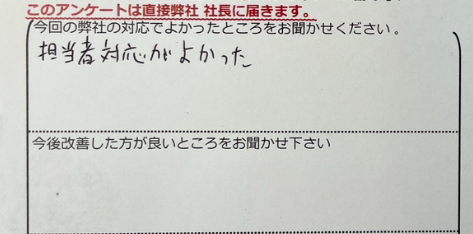 このアンケートは直接弊社 社長に届きます。
今回の弊社の対応でよかったところをお聞かせください。
担当者対応がよかった
今後改善した方が良いところをお聞かせ下さい